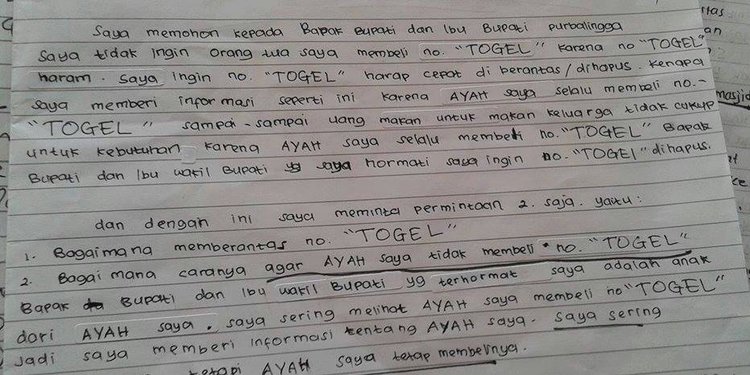 Saya memohon kepada Bapak Bupati dan Ibu Bupati purbalingga
Saya tidak ingin orang tua saya membeli no. "TOGEL" karena no "TOGEL"
haram. Saya ingin no. "TOGEL" harap cepat di berantas/dihapus. Kenapa
saya memberi informasi seperti ini karena AYAH saya selalu membeli no.-
"TOGEL" sampai-sampai uang makan untuk makan keluarga tidak cukup
untuk kebutuhan karena AYAH saya selalu membeli no. "TOGEL" Bapak
Bupati dan Ibu wakil Bupati yg saya hormati saya ingin no. "TOGEL" dihapus.
dan dengan ini saya meminta permintaan 2. saja. yaitu:
1. Bagaimana memberantas no. "TOGEL"
2. Bagai mana caranya agar AYAH saya tidak membeli no. "TOGEL"
Bapak Bupati dan Ibu wakil Bupati yg terhormat saya adalah anak
dari AYAH saya. saya sering melihat AYAH saya membeli no "TOGEL"
Jadi saya memberi informasi tentang AYAH saya. saya sering
tetapi AYAH saya tetap membelinya.